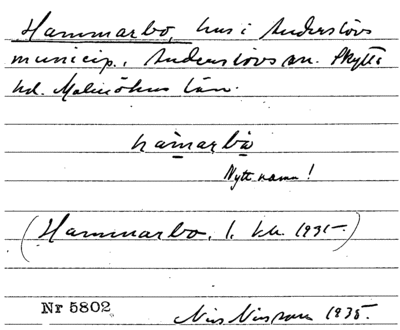 Hammarbo, hus i Anderslövs
municip., Anderslövs sn. Skytts
hd. Malmöhus län.
hamarbo
Nytt namn!
(Hammarbo, 1. kv. 1935.)
Nr 5802
Nils Nilsson 1935.